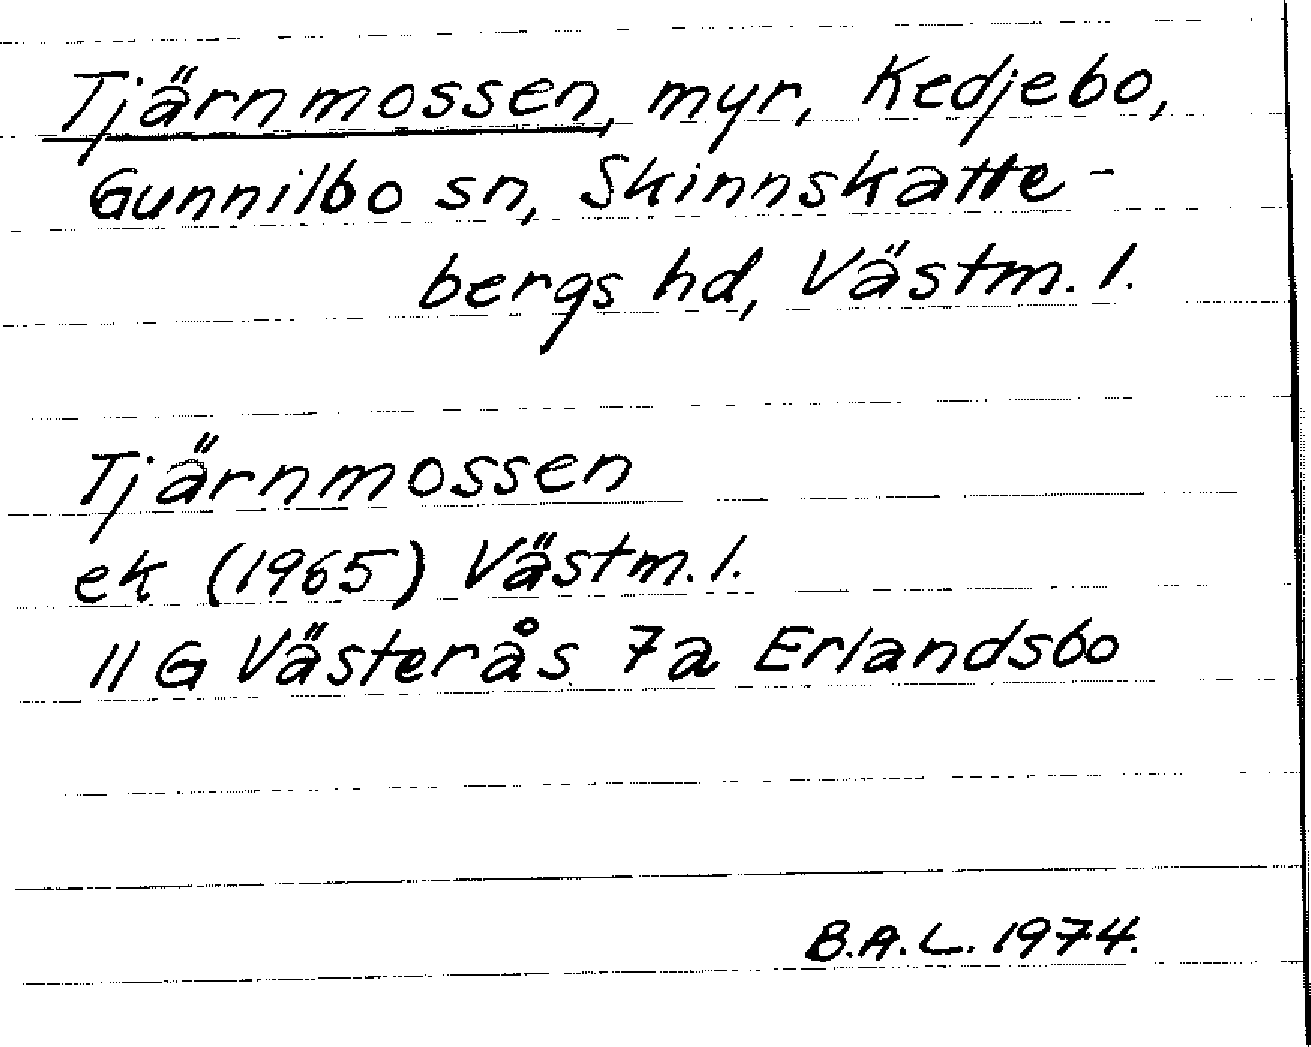 Tjärnmossen, myr, Kedjebo,
Gunnilbo sn, Skinnskatte-
bergs hd, Västm. l.
Tjärnmossen
ek (1965) Västm. l.
11 G Västerås 7a Erlandsbo
B.A.L. 1974.